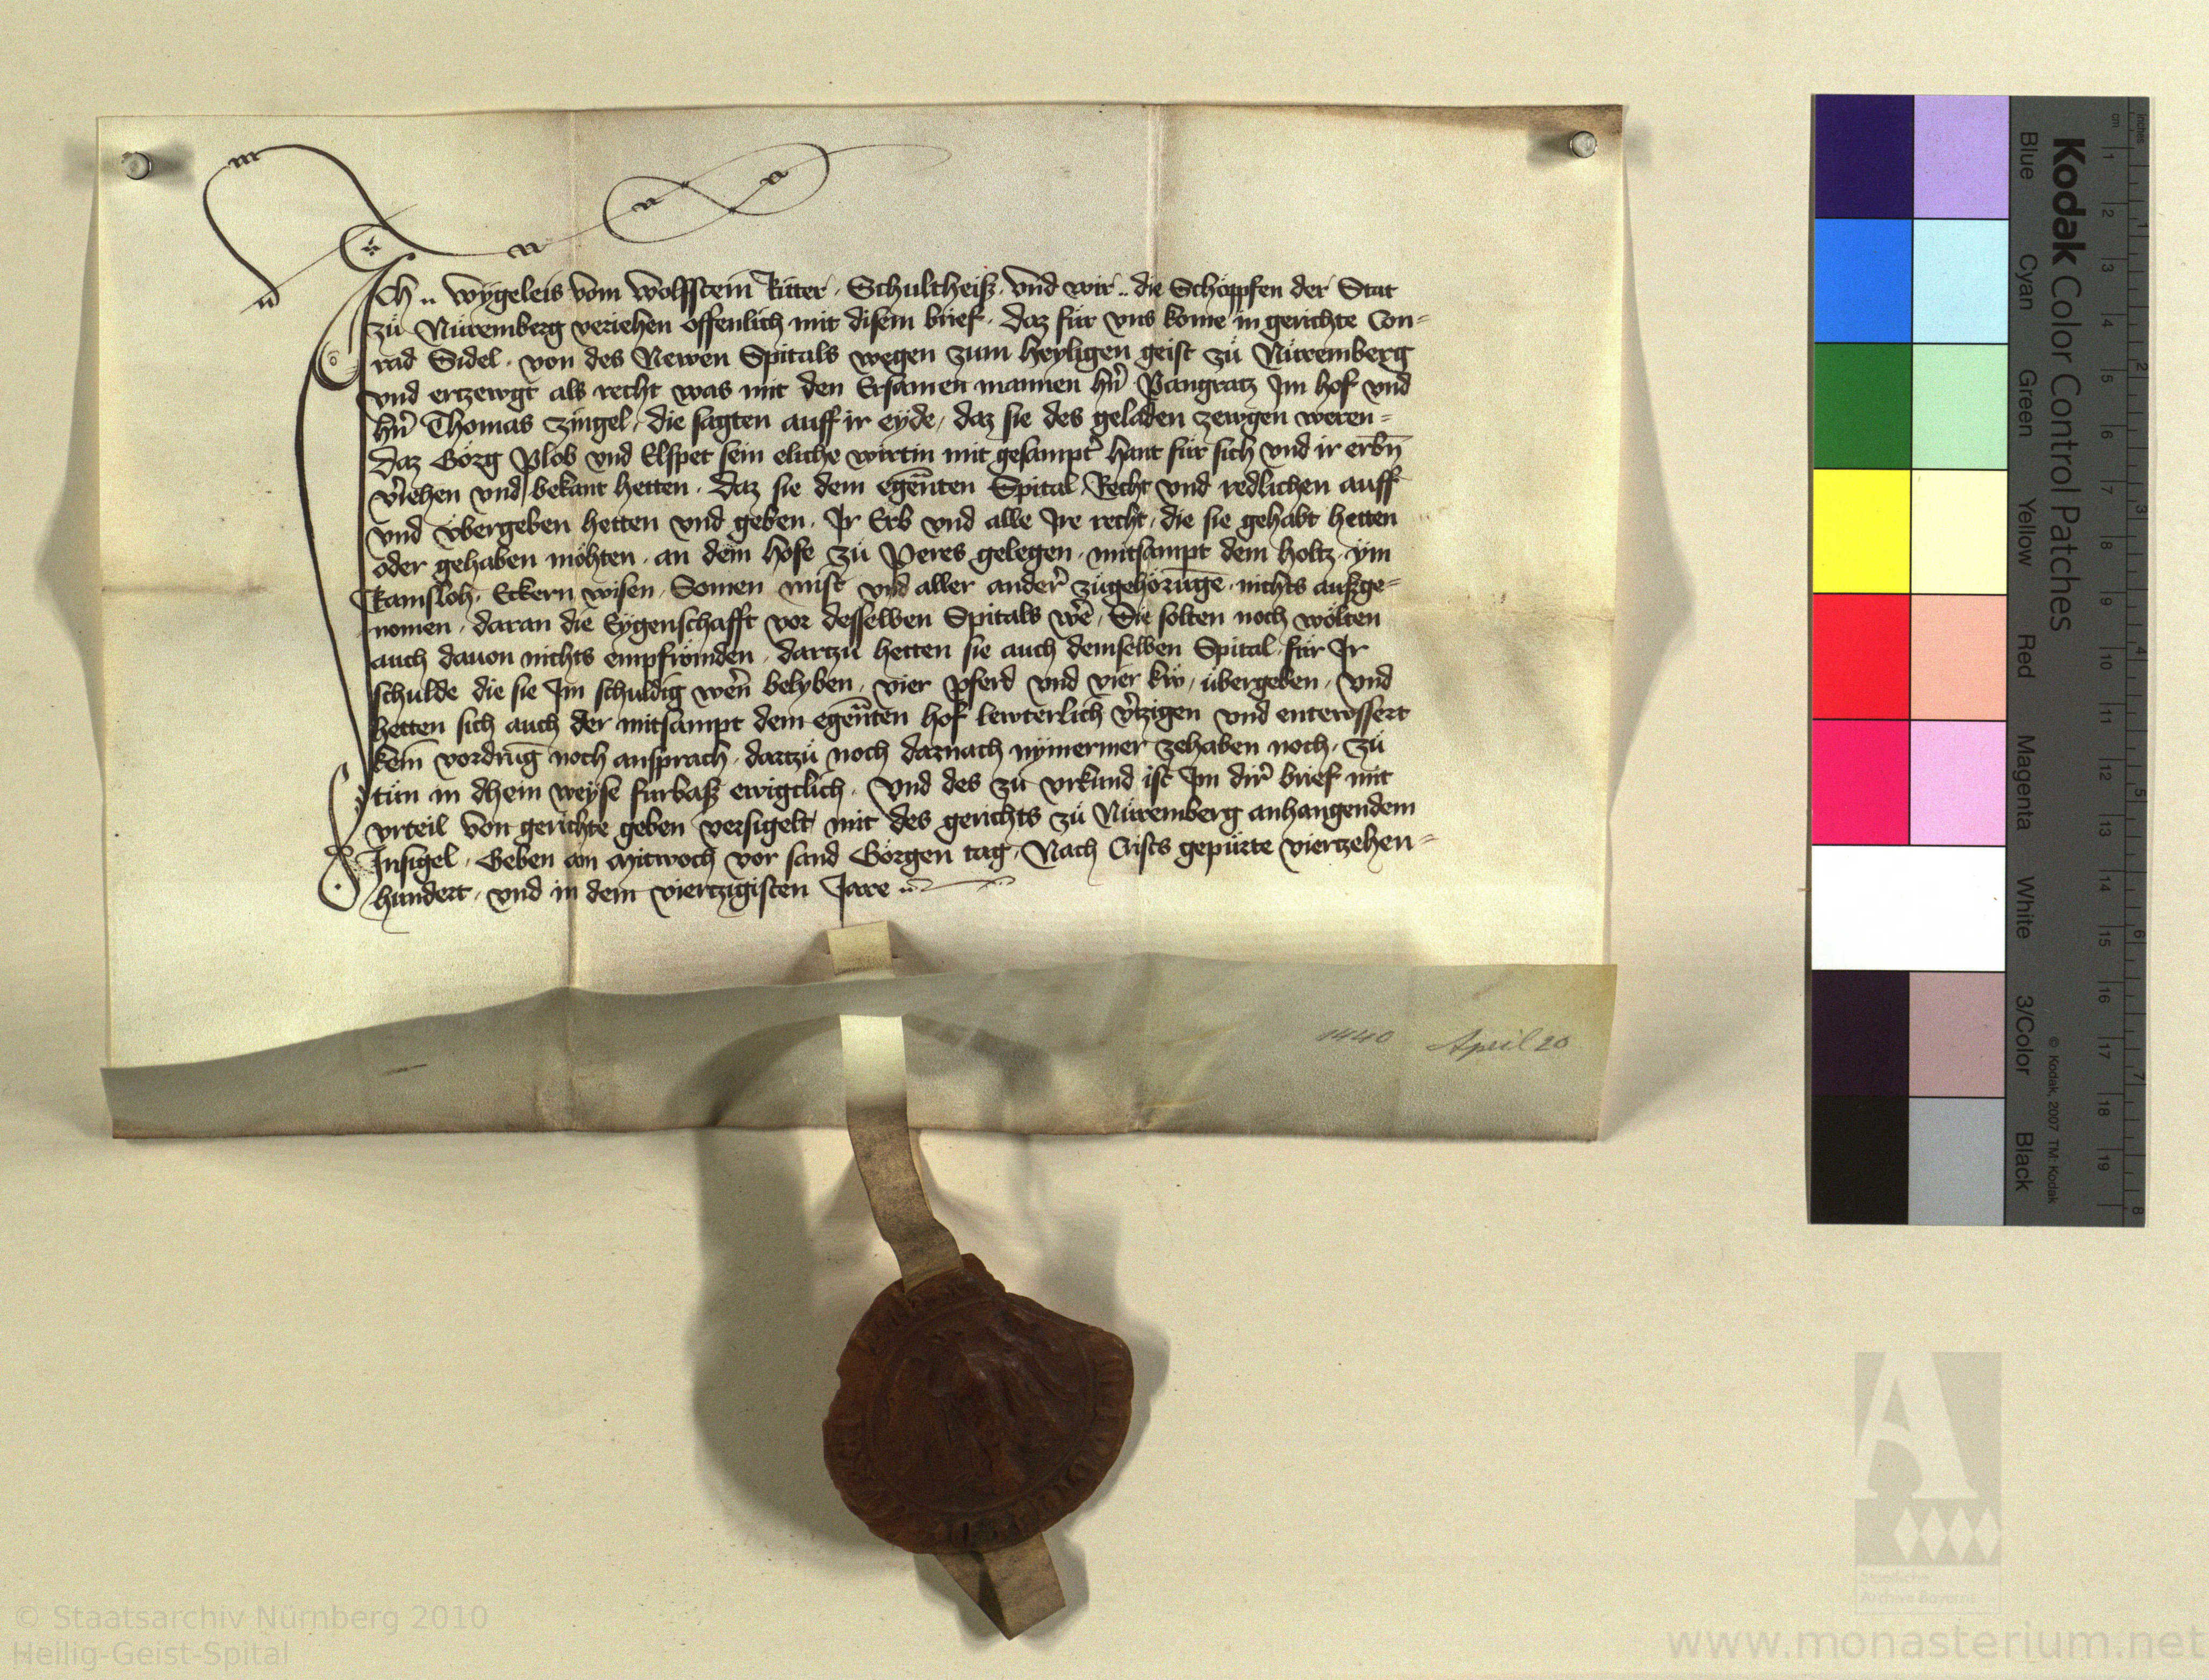 Ich .. Wygeleis vom Wolffstein Ritter, Schultheiß, vnd wir .. die Schöppfen der Stat
zů Nüremberg veriehen offenlich mit disem brief, daz für vns kome in gerichte Con=
rad Sidel, von des Newen Spitals wegen zum heyligen geist zů Nüremberg
vnd ertzewgt als recht was mit den Ersamen mannen hr̄n Pangratz Im hof vnd
hr̄n Thomas Zingel, die sagten auff ir eyde, daz sie des geladen zewgen weren=
daz Görg Plob vnd Elspet sein eliche wirtin mit gesampt' hant für sich vnd ir erbn̄
v'iehen vnd bekant hetten, daz sie dem egen̄nten Spital, Recht vnd redlichen auff
vnd vbergeben hetten vnd geben, Ir Erb vnd alle Ire recht, die sie gehabt hetten
oder gehaben möhten, an dem hofe zů Peres gelegen, mitsampt dem holtz, ym
Ramsloh, Eckern wisen, Somen mist vnd aller ander' zůgehörūge, nichts außge=
nomen, daran die Eygenschafft vor desselben Spitals wer̄, Sie solten noch wölten
auch dauon nichts empfrömden, dartzů hetten sie auch demselben Spital, für Ir
schulde die sie Im schuldig wer̄n belyben, vier pferd vnd vier kw̆, übergeben, vnd
hetten sich auch der mitsampt dem egen̄nten hof lewterlich v'tzigen vnd entewssert
kein vordrūg noch ansprach, dartzů noch darnach nymermer zehaben noch, zů
tůn in dhein weyse fürbaß ewigclich, Vnd des zů vrkund ist Im dir' brief mit
vrteil von gerichte geben versigelt mit des gerichts zů Nüremberg anhangendem
Insigel, Geben am Mitwoch vor sand Görgen tag, Nach Crists gepürte viertzehen=
hundert, vnd in dem viertzigisten Jare ..
1440 April 20
Kodak Color Control Patches
Blue Cyan Green Yellow Red Magenta White 3/Color Black
© Kodak, 2007 TM: Kodak
inches 1 2 3 4 5 6 7 8
cm 1 2 3 4 5 6 7 8 9 10 11 12 13 14 15 16 17 18 19
© Staatsarchiv Nürnberg 2010
Heilig-Geist-Spital
www.monasterium.net